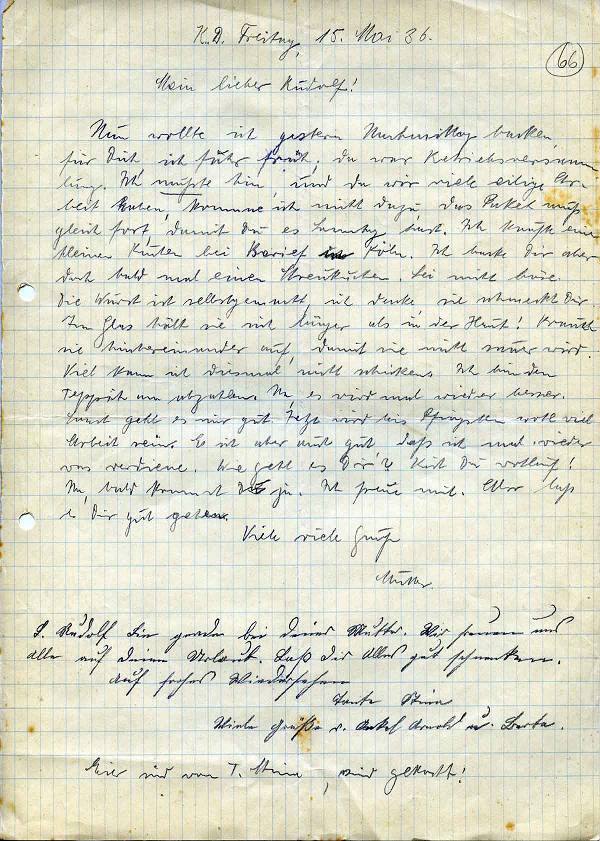 K.D. Freitag, 15. Mai 36.
66
Mein lieber Rudolf!
Nun wollte ich gestern Nachmittag backen
für Dich, ich fuhr früh, da war Betriebsversamm
lung. Ich mußte hin, und da wir viele eilige Ar-
beit haben, komme ich nicht dazu, das Paket muß
gleich fort, damit Du es Samstag hast. Ich kaufte eine
kleinen Kuchen bei Köln. Ich backe Dir aber
doch bald mal einen Streukuchen. Sei nicht böse.
Die Wurst ist selbstgemacht, ich denke, sie schmeckt Dir.
Im Glas hält sie sich länger als in der Haut! Brauch
sie hintereinander auf, damit sie nicht sauer wird.
Viel kann ich diesmal nicht schicken. Ich bin den
Teppich am abzahlen. Na, es wird mal wieder besser.
Sonst geht es mir gut. Jetzt wird bis Pfingsten wohl viel
Arbeit sein. Es ist aber auch gut, daß ich mal wieder
was verdiene. Wie geht es Dir? Bist Du wohlauf!
Na, bald kommst Du ja. Ich freue mich. Also laß
es Dir gut gehen.
Viele viele Grüße
Mutter.
L. Rudolf Bin gerade bei deiner Mutter. Wir freuen uns
alle auf deinen Urlaub. Laß dir Alles gut schmecken.
Auf frohes Wiedersehen
Tante Stina
Viele Grüße v. Onkel Arnold u. Berta.
Eier sind von T. Stina, sind gekocht!